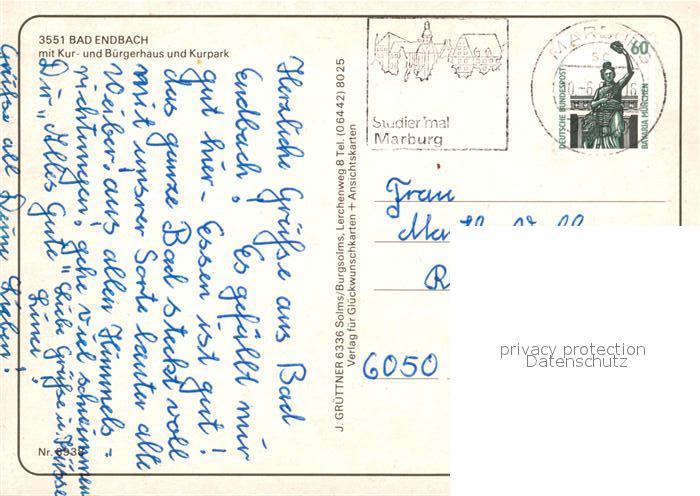 3551 BAD ENDBACH
mit Kur- und Bürgerhaus und Kurpark
Herzliche Grüße aus Bad
Endbach. Es gefällt mir
gut hier - Essen ist gut!
das ganze Bad steckt voll
mit unsrer Sorte lauter alte
Weiber, aus allen Himmels-
richtungen, gehe viel schwimmen
Dir "Alles Gute" Liebe Grüße u. Küsse
Grüße all Deine Lieben!
Nr.
J. GRÜTTNER 6336 Solms/Burgsolms, Lerchenweg 8 Tel. (06442) 8025
Verlag für Glückwunschkarten + Ansichtskarten
Studier mal
Marburg
MARBURG
60
DEUTSCHE BUNDESPOST
BAVARIA MÜNCHEN
Frau
6050
privacy protection
Datenschutz